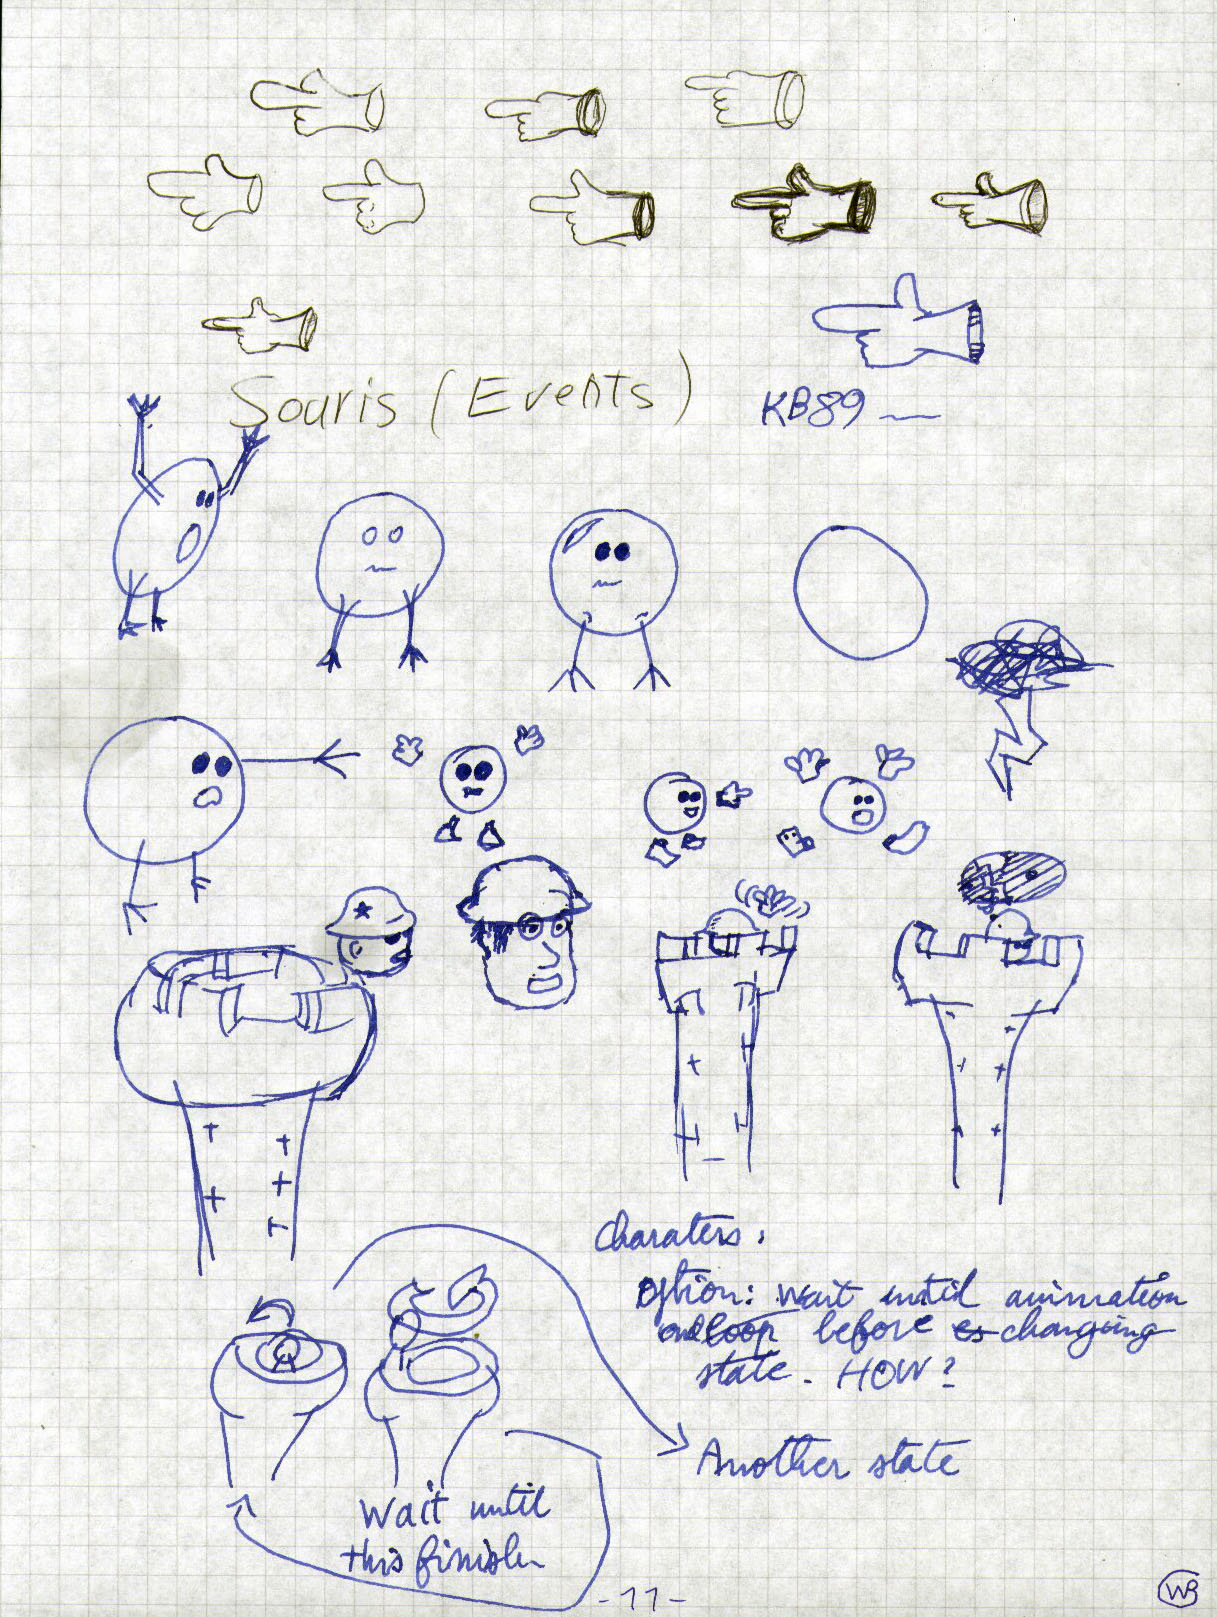 Souris (Events)
KB89
Charaters.
Option: Wait until animation
endloop before changing
state. HOW?
Another state
Wait until
this finish
-11-
WB